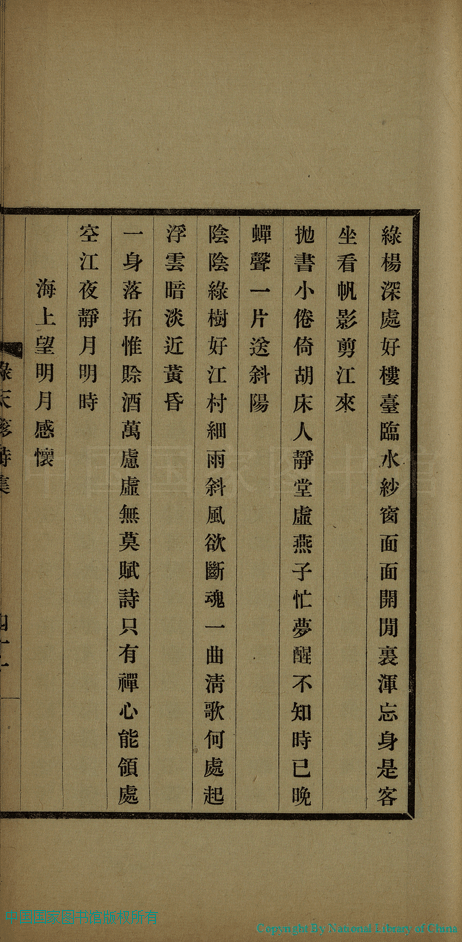 綠楊深處好樓臺臨水紗窗面面開閒裏渾忘身是客
坐看帆影剪江來
拋書小倦倚胡床人靜堂虛燕子忙夢醒不知時已晚
蟬聲一片送斜陽
陰陰綠樹好江村細雨斜風欲斷魂一曲淸歌何處起
浮雲暗淡近黃昏
一身落拓惟賒酒萬慮虛無莫賦詩只有禪心能領處
空江夜靜月明時
海上望明月感懷
中国国家图书馆
中国国家图书馆版权所有
Copyright By National Library of China